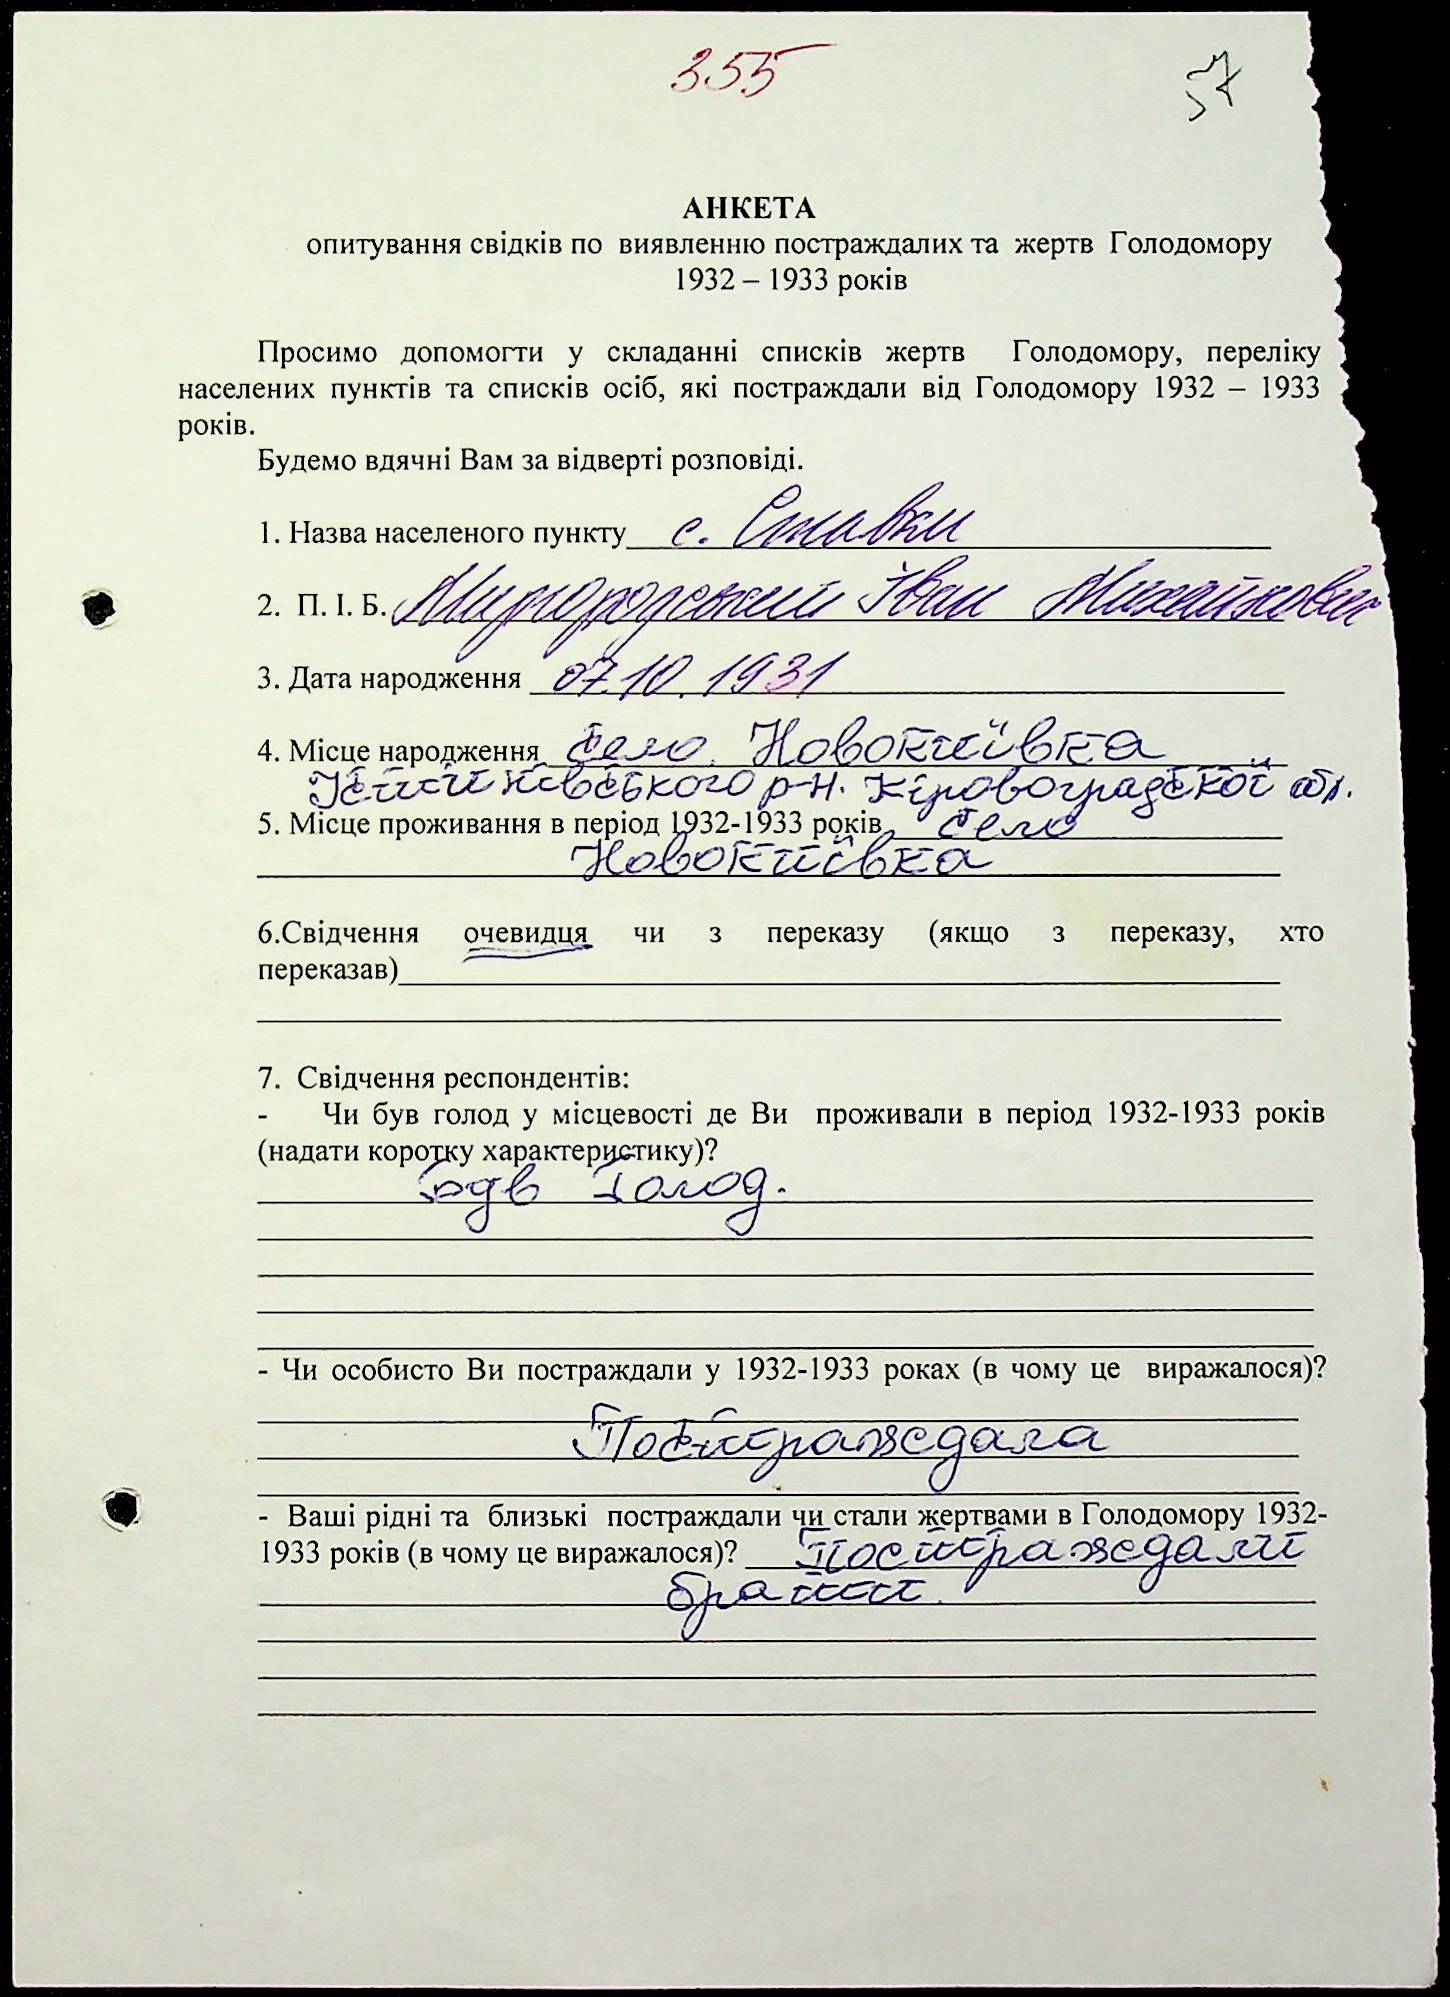 355
57
АНКЕТА
опитування свідків по виявленню постраждалих та жертв Голодомору
1932 – 1933 років
Просимо допомогти у складанні списків жертв Голодомору, переліку
населених пунктів та списків осіб, які постраждали від Голодомору 1932 – 1933
років.
Будемо вдячні Вам за відверті розповіді.
1. Назва населеного пункту с. Ставки
2. П. І. Б. Миргородський Іван Михайлович
3. Дата народження 07.10.1931
4. Місце народження село Новокиївка
р-н. Кіровоградской обл.
5. Місце проживання в період 1932-1933 років село
Новокиївка
6.Свідчення очевидця чи з переказу (якщо з переказу, хто
переказав)
7. Свідчення респондентів:
- Чи був голод у місцевості де Ви проживали в період 1932-1933 років
(надати коротку характеристику)?
Голод.
- Чи особисто Ви постраждали у 1932-1933 роках (в чому це виражалося)?
Постраждала
- Ваші рідні та близькі постраждали чи стали жертвами в Голодомору 1932-
1933 років (в чому це виражалося)? Постраждали
брати.